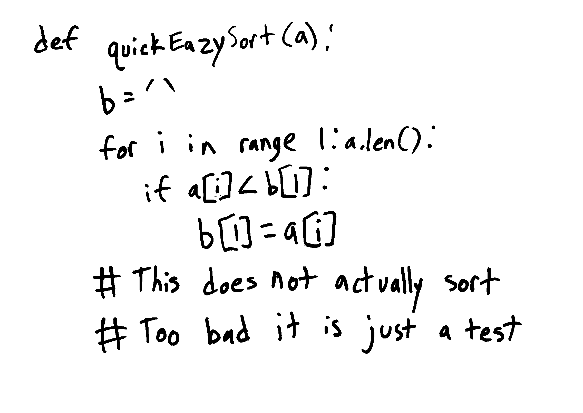 def quickEazySort(a):
b = ''
for i in range 1:a.len():
if a[i]<b[1]:
b[1]=a[i]
# This does not actually sort
# Too bad it is just a test